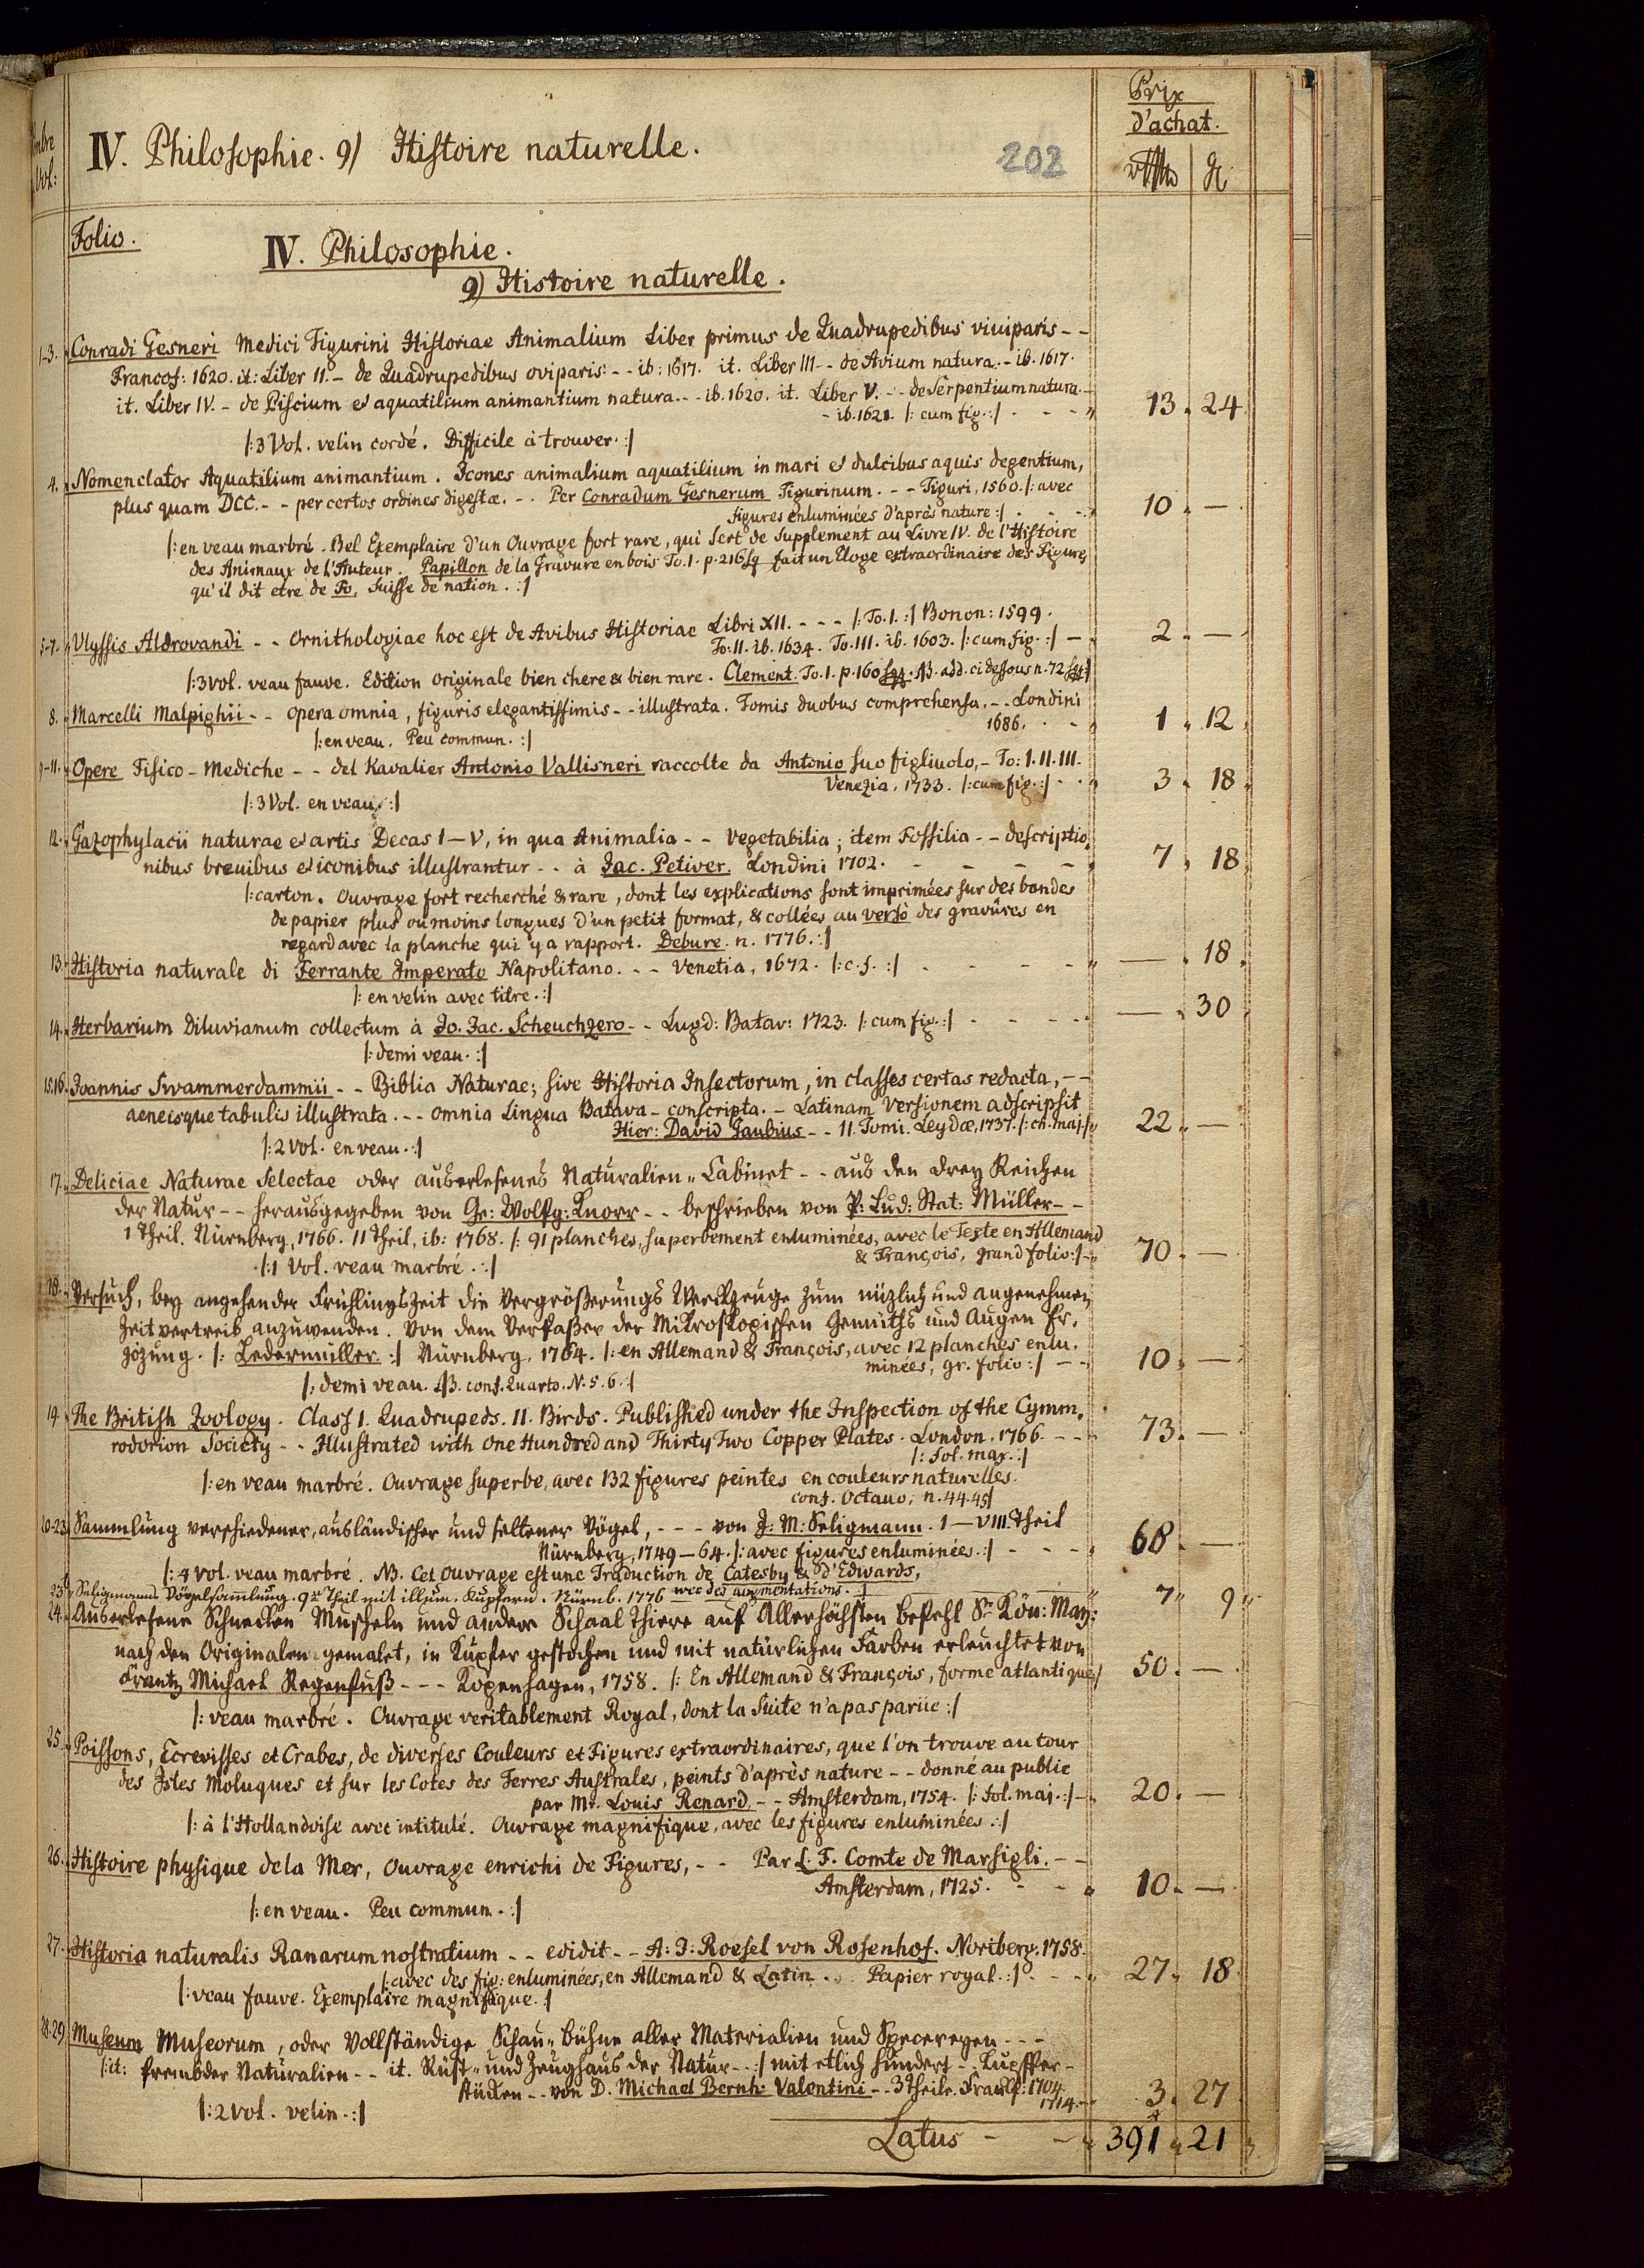 Prix
d'achat.
IV. Philosophie. 9) Histoire naturelle.
202
Folio.
IV. Philosophie.
9) Histoire naturelle.
1-3. Conradi Gesneri Medici Tigurini Historiae Animalium Liber primus de Quadrupedibus viviparis - -
Francof: 1620. it: Liber II. - de Quadrupedibus oviparis - - ib: 1617. it. Liber III - - de Avium natura. - ib. 1617.
it. Liber IV. - de Piscium et aquatilium animantium natura. - - ib. 1620. it. Liber V. - - de Serpentium natura. -
- ib. 1621. /: cum fig. :/ - - - " 13. 24.
/: 3 Vol. velin cordé. Difficile à trouver. :/
4. Nomenclator Aquatilium animantium. Icones animalium aquatilium in mari et dulcibus aquis degentium,
plus quam DCC. - - per certos ordines digestæ. - - Per Conradum Gesnerum Tigurinum. - - Tiguri, 1560. /: avec
figures enluminées d'après nature :/ - - - 10. —.
/: en veau marbré. Bel Exemplaire d'un Ouvrage fort rare, qui sert de Supplement au Livre IV. de l'Histoire
des Animaux de l'Auteur. Papillon de la Gravure en bois To. 1. p. 216 sq fait un Eloge extraordinaire des Figures
qu'il dit etre de Fo, Suisse de nation. :/
5-7. Ulyssis Aldrovandi - - Ornithologiae hoc est de Avibus Historiae Libri XII. - - - /: To. I. :/ Bonon: 1599.
To: II. ib. 1634. To. III. ib. 1603. /: cum fig. :/ — 2. —.
/: 3 Vol. veau fauve. Edition originale bien chere & bien rare. Clement. To. 1. p. 160 sqq. NB. add. ci dessous n. 72 sq :/
8. Marcelli Malpighii - - Opera omnia, figuris elegantissimis - - illustrata. Tomis duobus comprehensa. - - Londini
1686. - - 1. 12.
/: en veau. Peu commun. :/
9-11. Opere Fisico-Mediche - - del Kavalier Antonio Vallisneri raccolte da Antonio suo figliuolo, - To: I. II. III.
Venezia, 1733. /: cum fig. :/ - - 3. 18.
/: 3 Vol. en veau. :/
12. Gazophylacii naturae et artis Decas I—V, in qua Animalia - - vegetabilia; item Fossilia - - descriptio,
nibus brevibus et iconibus illustrantur - - à Jac. Petiver. Londini 1702. - - - - 7. 18.
/: carton. Ouvrage fort recherché & rare, dont les explications sont imprimées sur des bandes
de papier plus ou moins longues d'un petit format, & collées au verso des gravûres en
regard avec la planche qui y a rapport. Debure. n. 1776. :/
13. Historia naturale di Ferrante Imperato Napolitano. - - Venetia, 1672. /: c. f. :/ - - - - - " —. 18.
/: en velin avec titre. :/
14. Herbarium Diluvianum collectum à Jo. Jac. Scheuchzero - - Lugd: Batav: 1723. /: cum fig. :/ - - - - —. 30.
/: demi veau. :/
15.16. Joannis Swammerdammii - - Biblia Naturae; sive Historia Insectorum, in classes certas redacta, - -
aeneisque tabulis illustrata. - - omnia Lingua Batava - conscripta. - Latinam Versionem adscripsit
Hier: David Gaubius - - II. Tomi. Leydæ, 1737. /: ch. maj :/ 22. —.
/: 2 Vol. en veau. :/
17. Deliciae Naturae Selectae oder auserlesenes Naturalien-Cabinet - - aus den drey Reichen
der Natur - - herausgegeben von Ge: Wolfg: Knorr - - beschrieben von P: Lud: Stat: Müller - -
I Theil. Nürnberg, 1766. II Theil, ib: 1768. /: 91 planches, superbement enluminées, avec le Texte en Allemand
& François, grand folio :/ - 70. —.
/: 1 Vol. veau marbré. :/
18. Versuch, bey angehender Frühlingszeit die Vergrößerungs Werckzeuge zum nüzlich und angenehmen
Zeitvertreib anzuwenden. Von dem Verfaßer der Mikroskopischen Gemüths und Augen Er,
gözung. /: Ledermüller. :/ Nürnberg, 1764. /: en Allemand & François, avec 12 planches enlu,
minées, gr. folio :/ - - 10. —.
/: demi veau. NB. conf. Quarto. N. 5. 6. :/
19. The British Zoology. Class I. Quadrupeds. II. Birds. Published under the Inspection of the Cymm,
rodorion Society - - Illustrated with One Hundred and Thirty Two Copper Plates. London. 1766. - - - 73. —.
/: Fol. max. :/
/: en veau marbré. Ouvrage superbe, avec 132 figures peintes en couleurs naturelles.
conf. Octavo, n. 44. 45 :/
20-23. Sammlung verschiedener, ausländischer und seltener Vögel, - - - von J: M: Seligmann. I—VIII. Theil
Nürnberg, 1749—64. /: avec figures enluminées. :/ - - - - 68. —.
/: 4 Vol. veau marbré. NB. Cet Ouvrage est une Traduction de Catesby & d'Edwards,
avec des augmentations. :/
23b Seligmanns Vögelsammlung. 9ter Theil mit illum. Kupfern. Nürnb. 1776 7" 9"
24. Auserlesene Schnecken Muscheln und andere Schaal Thiere auf Allerhöchsten Befehl Sr. Kön: May:
nach den Originalen gemalet, in Kupfer gestochen und mit natürlichen Farben erleuchtet von
Frantz Michael Regenfuß - - - Kopenhagen, 1758. /: En Allemand & François, forme atlantique :/ 50. —.
/: veau marbré. Ouvrage veritablement Royal, dont la Suite n'a pas parüe :/
25. Poissons, Ecrevisses et Crabes, de diverses Couleurs et Figures extraordinaires, que l'on trouve autour
des Isles Moluques et sur les Cotes des Terres Australes, peints d'après nature - - donné au public
par Mr. Louis Renard - - Amsterdam, 1754. /: Fol. maj. :/ - 20. —
/: à l'Hollandoise avec intitulé. Ouvrage magnifique, avec les figures enluminées. :/
26. Histoire physique de la Mer, Ouvrage enrichi de Figures, - - Par L. F. Comte de Marsigli. - -
Amsterdam, 1725. - - 10. —.
/: en veau. Peu commun. :/
27. Historia naturalis Ranarum nostratium - - edidit - - A: J: Roesel von Rosenhof. Noriberg. 1758.
/: avec des fig: enluminées, en Allemand & Latin. .. Papier royal. :/ - - - 27. 18.
/: veau fauve. Exemplaire magnifique. :/
28.29 Museum Museorum, oder Vollständige Schau-Bühne aller Materialien und Specereyen - - -
/: it: frembder Naturalien - - it. Rüst- und Zeughaus der Natur - - :/ mit etlich hundert - Kupffer-
stücken - - von D. Michael Bernh: Valentini - - 3 Theile. Franckf: 1704
1714. - 3. 27
/: 2 Vol. velin. :/
Latus - - 391. 21